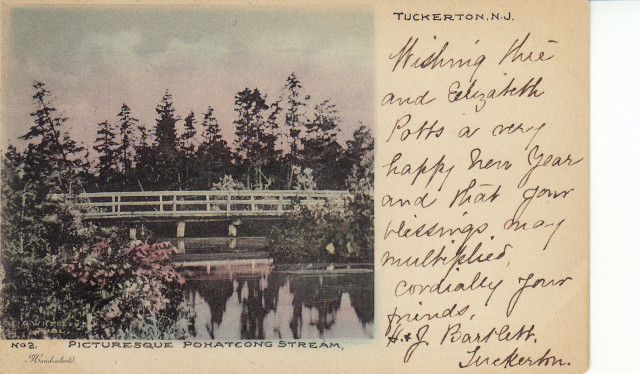 TUCKERTON, N.J.
Wishing thee
and Elizabeth
Potts a very
happy New Year
and that your
blessings may
multiplied,
cordially your
friends,
H. & J. Bartlett.
Tuckerton.
No 2. PICTURESQUE POHATCONG STREAM,
Handcolored.